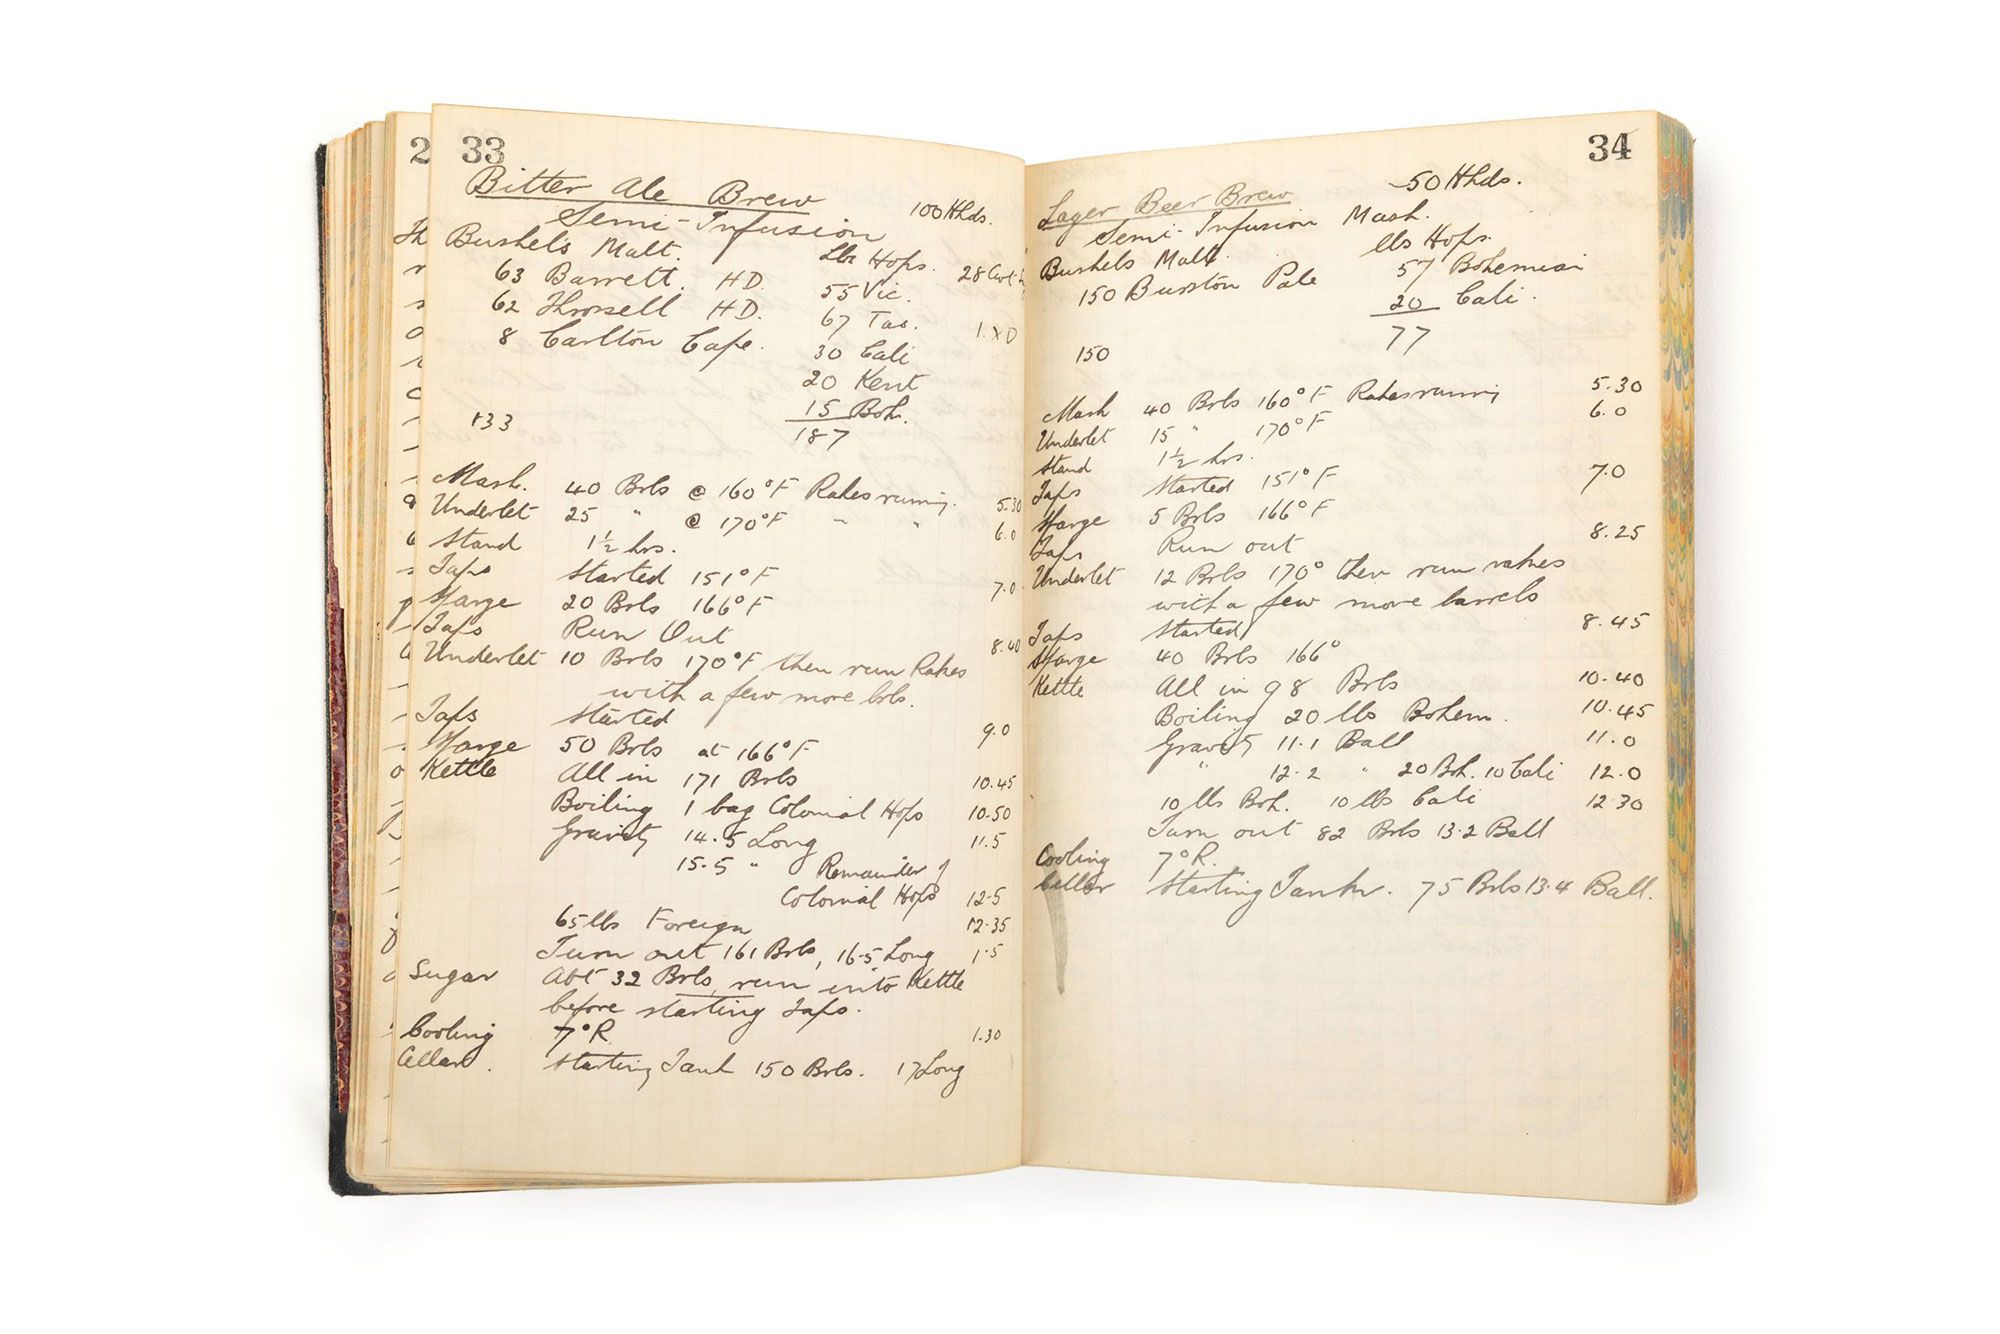 2
33
Bitter Ale Brew 100 Hhds.
Semi-Infusion
Bushels Malt. Lbs Hops.
63 Barrett. HD. 55 Vic. 28 Cwt
62 Throsell HD. 67 Tas.
8 Carlton Cape. 30 Cali
20 Kent
15 Boh.
133 187
Mash. 40 Brls @ 160°F Rakes running. 5.30
Underlet 25 " @ 170°F " " 6.0
Stand 1½ hrs.
Taps Started 151°F 7.0
Sparge 20 Brls 166°F
Taps Run Out 8.40
Underlet 10 Brls 170°F then run Rakes
with a few more brls.
Taps Started 9.0
Sparge 50 Brls at 166°F
Kettle All in 171 Brls 10.45
Boiling 1 bag Colonial Hops 10.50
Gravity 14.5 Long 11.5
15.5 " Remainder of
Colonial Hops 12.5
65 lbs Foreign 12.35
Turn out 161 Brls, 16.5 Long 1.5
Sugar Abt 32 Brls run into Kettle
before starting Taps.
Cooling 7°R 1.30
Cellar. Starting Tank 150 Brls. 17 Long
34
Lager Beer Brew 50 Hhds.
Semi-Infusion Mash.
Bushels Malt. lbs Hops.
150 Burston Pale 57 Bohemian
20 Cali.
150 77
Mash 40 Brls 160°F Rakes running 5.30
Underlet 15 " 170°F 6.0
Stand 1½ hrs.
Taps Started 151°F 7.0
Sparge 5 Brls 166°F
Taps Run out 8.25
Underlet 12 Brls 170° then run rakes
with a few more barrels
Taps Started 8.45
Sparge 40 Brls 166°
Kettle All in 98 Brls 10.40
Boiling 20 lbs Bohem. 10.45
Gravity 11.1 Ball 11.0
" 12.2 " 20 Boh. 10 Cali 12.0
10 lbs Boh. 10 lbs Cali 12.30
Turn out 82 Brls 13.2 Ball
Cooling 7°R.
Cellar Starting Tank. 75 Brls 13.4 Ball.